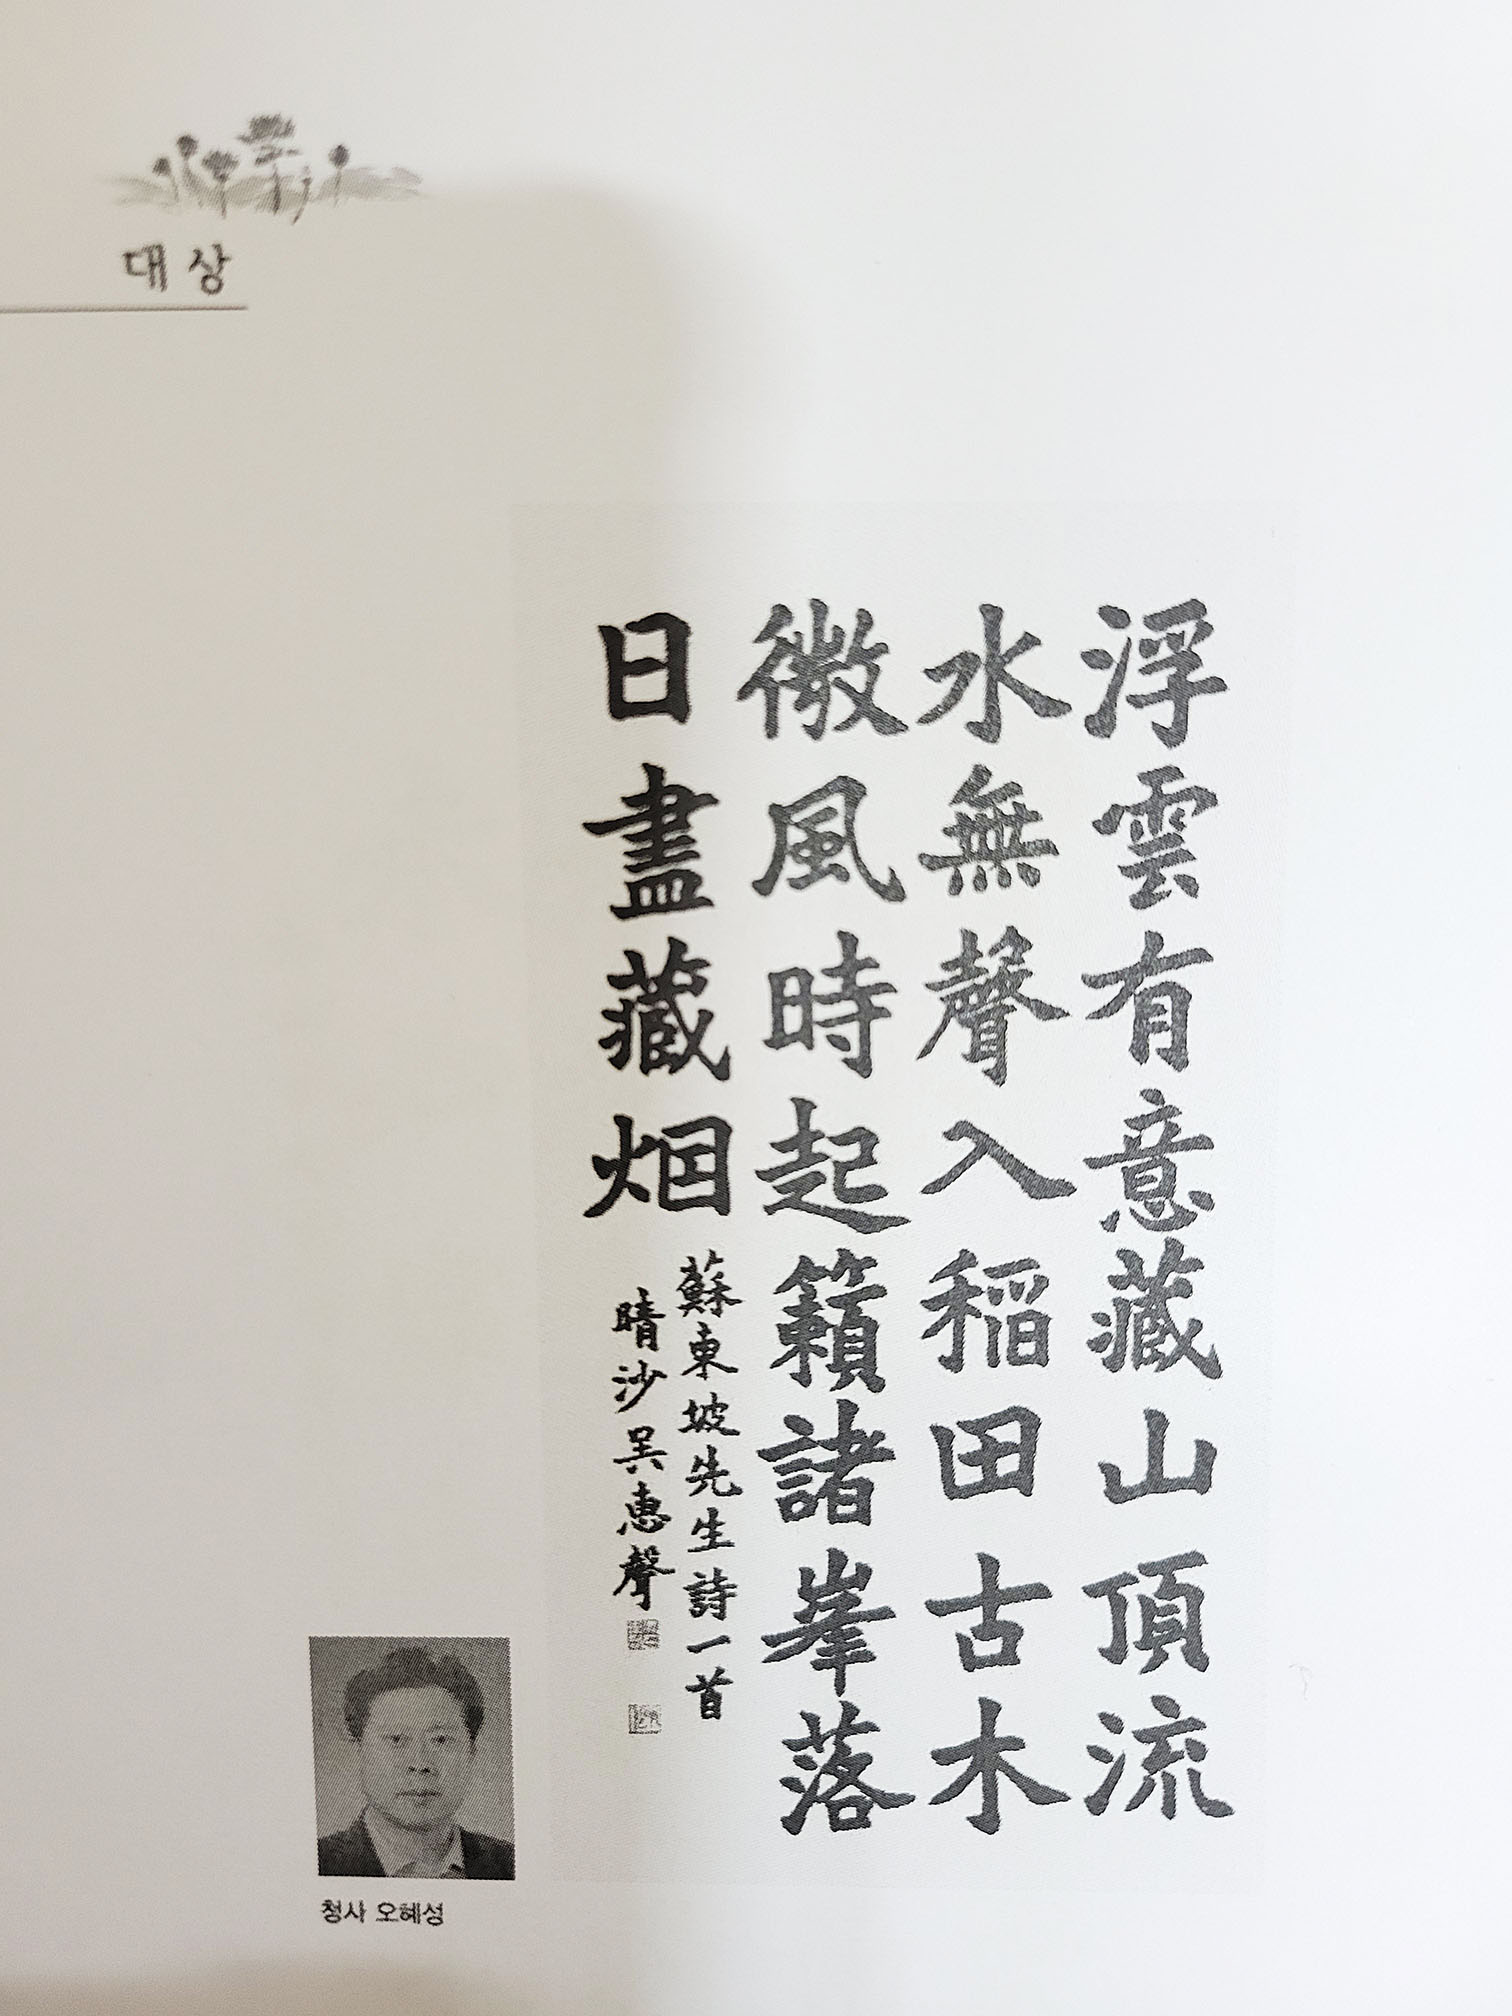 대상
浮雲有意藏山頂流
水無聲入稲田古木
微風時起籟諸峯落
日盡藏烟
蘇東坡先生詩一首
晴沙吳惠聲
청사 오혜성